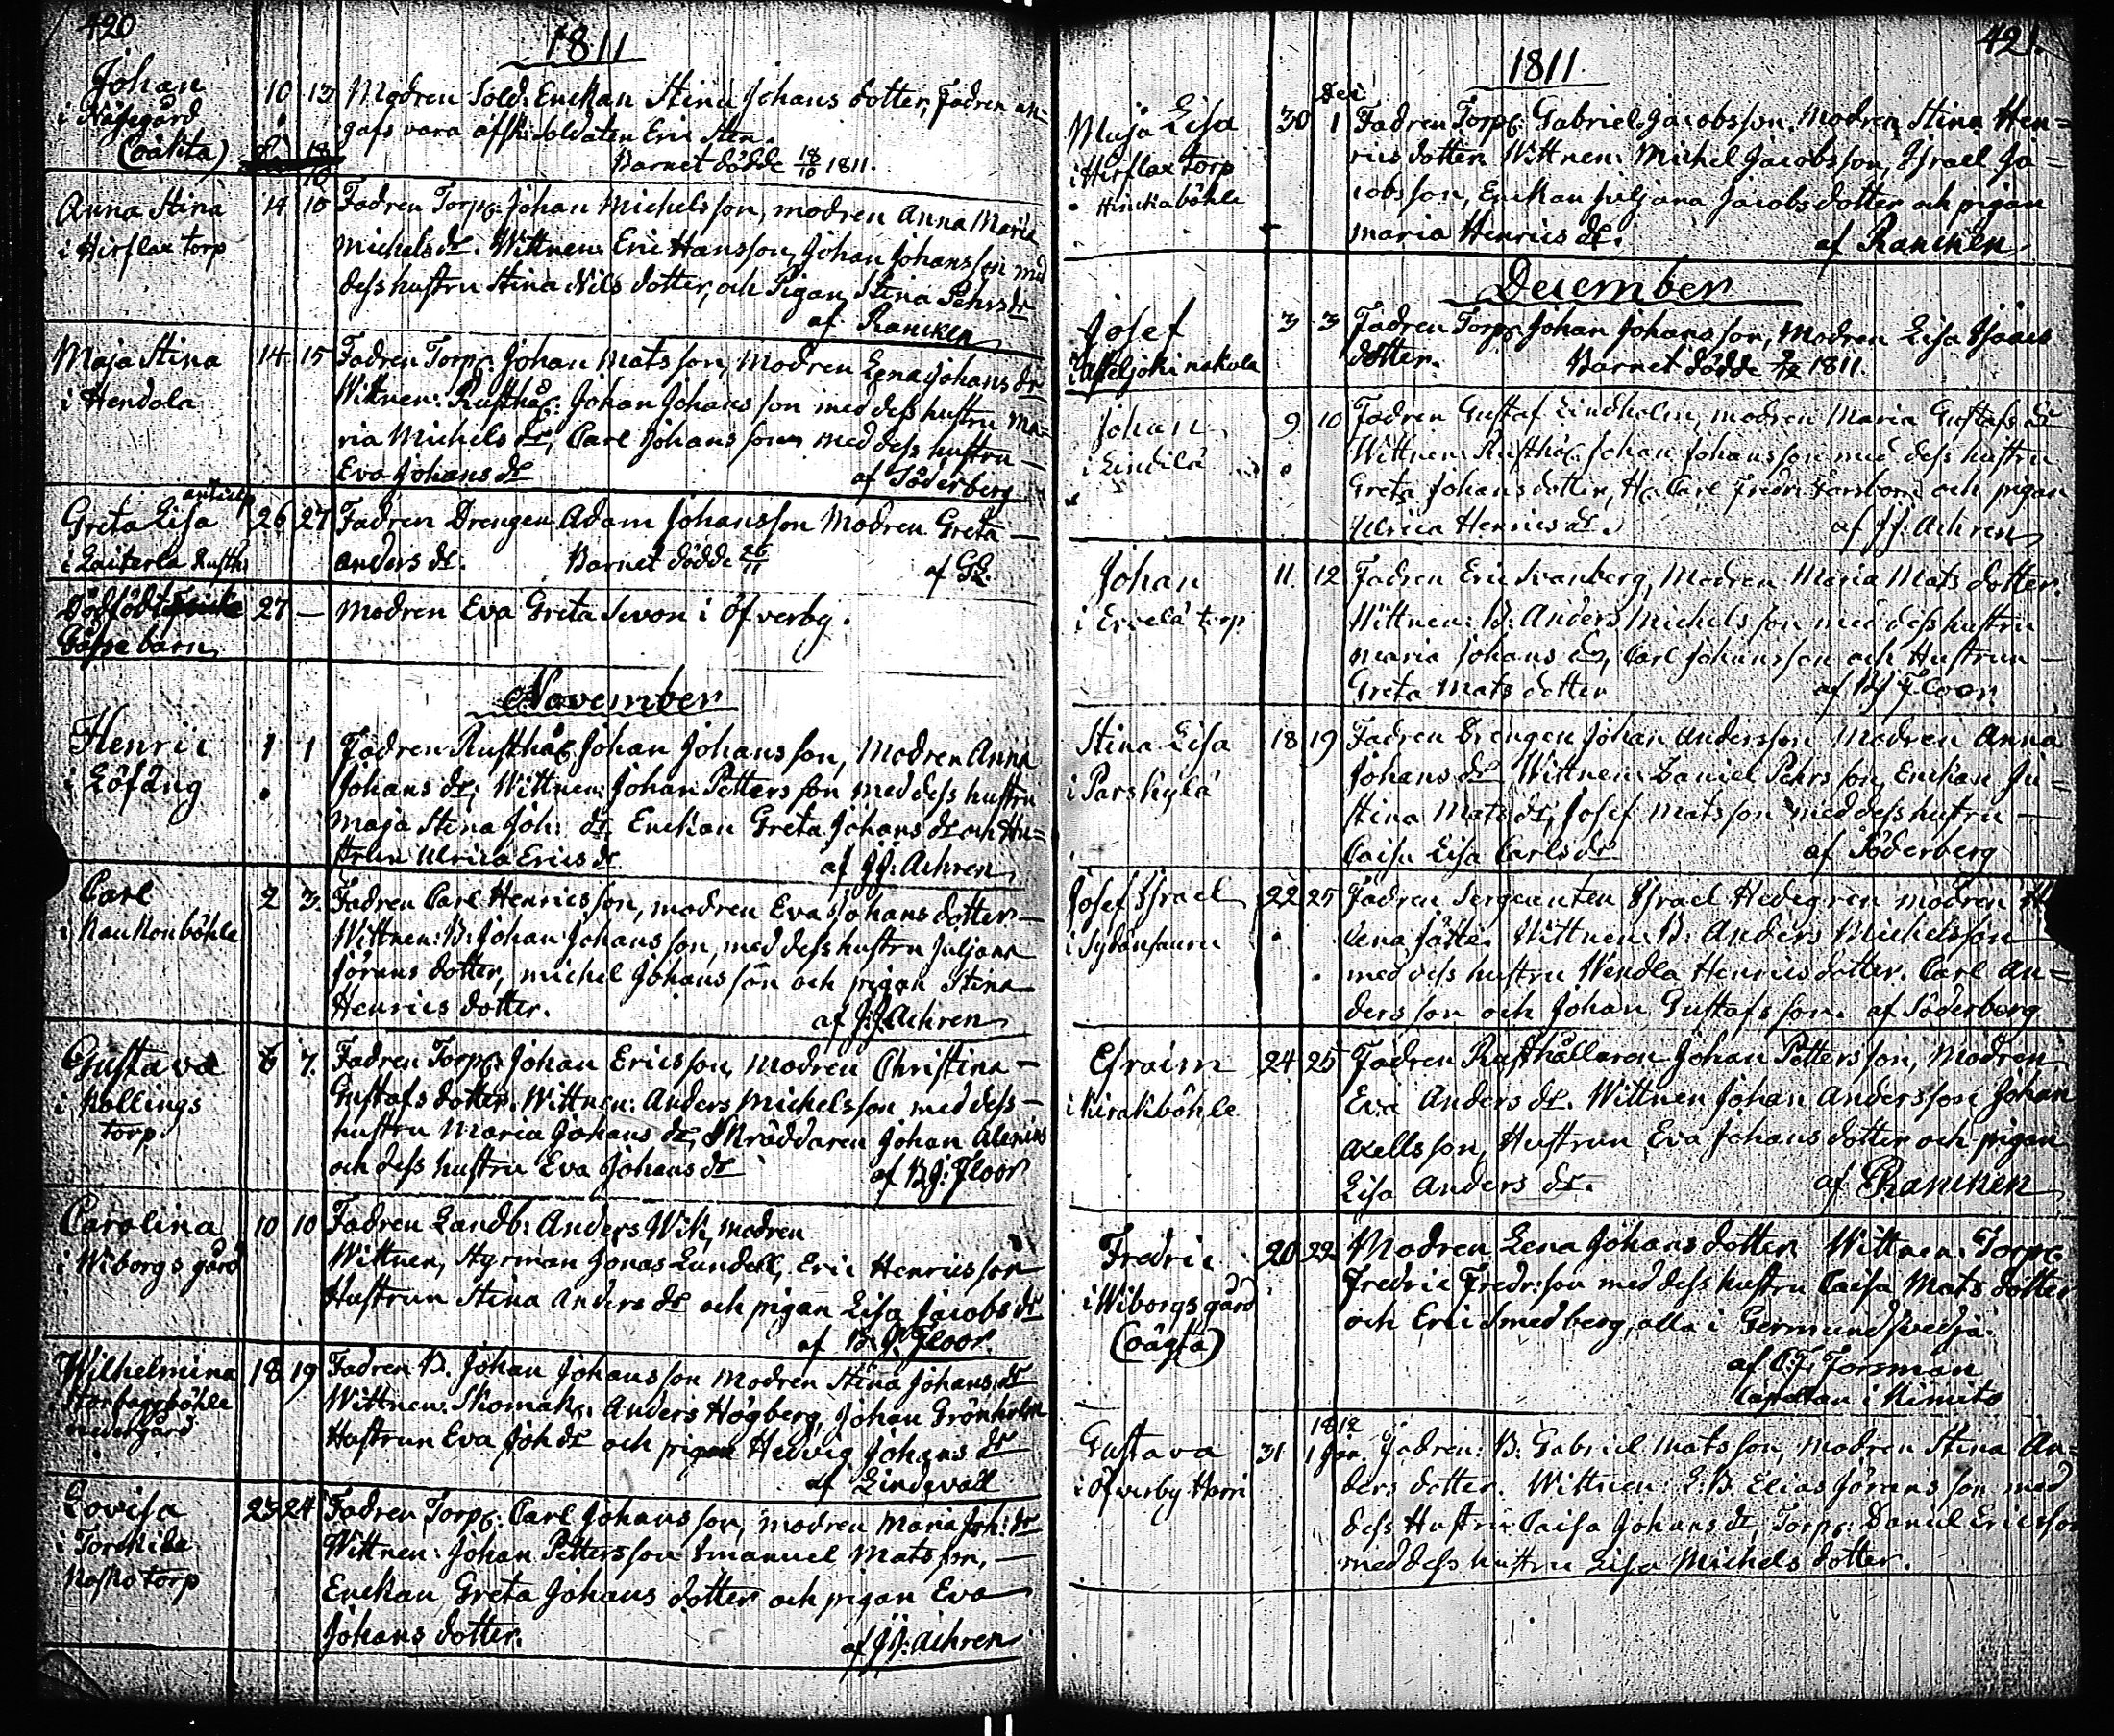 420
1811
Johan 10 13 Modren Sold: Enckan Stina Johans dotter, Fadren an=
i Näsegård gafs vara afsk: Soldaten Eric Sten
(oäkta) Barnet dödde 18/10 1811.
Anna Stina 14 15 Fadren Torp: Johan Michelsson, modren Anna Maria
i Hirflax torp Michels dr. Wittnen: Eric Hansson, Johan Johansson med
dess hustru Stina Nils dotter, och Pigan Stina Pehrs dr
af Rancken
Maja Stina 14 15 Fadren Torp: Johan Matsson, Modren Lena Johans dr
i Hendola Wittnen: Rusthål: Johan Johansson med dess hustru Ma=
ria Michels dr, Carl Johansson med dess hustru
Eva Johans dr af Söderberg
Greta Lisa 26 27 Fadren Drengen Adam Johansson Modren Greta
i Laiterla Rusth: Anders dr. Barnet dödde 26/11 af GL.
Dödfödt 27 — Modren Eva Greta Sevon i Öfverby.
Gosse barn
November
Henric 1 1 Fadren Rusthål: Johan Johansson, Modren Anna
i Löfång Johans dr; Wittnen: Johan Pettersson med dess hustru
Maja Stina Joh: dr. Enckan Greta Johans dr och Hu=
strun Ulrica Erics dr. af JJ: Achren
Carl 2 3. Fadren Carl Henricsson, modren Eva Johans dotter
i Kaukonböhle Wittnen: B: Johan Johansson, med dess hustru Juljana
Jörans dotter, Michel Johansson och pigan Stina
Henrics dotter. af J:J: Achren
Gustava 6 7. Fadren Torp: Johan Ericsson, Modren Christina
i Kollings Gustafs dotter. Wittnen: Anders Michelsson med dess
torp hustru Maria Johans dr, Skräddaren Johan Alenius
och dess hustru Eva Johans dr af BJ: Floor
Carolina 10 10 Fadren Landb: Anders Wik, modren
i Wiborgs gård Wittnen, Styrman Jonas Lundell, Eric Henricsson
Hustrun Stina Anders dr och pigan Lisa Jacobs dr
af B: J: Floor.
Wilhelmina 18 19 Fadren B. Johan Johansson Modren Stina Johans dr
Wittnen: Skomak: Anders Högberg, Johan Grönholm
nedergård Hustrun Eva Joh dr och pigan Hedvig Johans dr
af Lindevall
Lovisa 23 24 Fadren Torp: Carl Johansson, modren Maria Joh: dr
i Torskila Wittnen: Johan Pettersson Emanuel Matsson,
Kosko torp Enckan Greta Johans dotter och pigan Eva
Johans dotter. af JJ: Achren
421.
1811.
Maja Lisa 30 Dec: 1 Fadren Torp: Gabriel Jacobsson, Modren Stina Hen=
i Hirflax torp rics dotter. Wittnen: Michel Jacobsson, Israel Ja=
Hinckaböhle cobsson, Enckan Juljana Jacobs dotter och pigan
Maria Henrics dr. af Rancken
December
Josef 3 3 Fadren Torp: Johan Johansson, Modren Lisa Isaacs
dotter. Barnet dödde 1811.
Johan 9 10 Fadren Gustaf Lindholm, modren Maria Gustafs dr
i Lindila Wittnen: Rusthål: Johan Johansson med dess hustru
Greta Johans dotter, H: Carl Fredr: Forsbom och pigan
Ulrica Henrics dr. af JJ: Achren
Johan 11. 12 Fadren Eric Svanberg, Modren Maria Mats dotter.
i Ervelä torp Wittnen: B: Anders Michelsson med dess hustru
Maria Johans dr, Carl Johansson och Hustrun
Greta Mats dotter af BJ Floor
Stina Lisa 18 19 Fadren Drengen Johan Andersson Modren Anna
i Parskylä Johans dr Wittnen: Daniel Pehrsson, Enckan Ju=
stina Mats dr, Josef Matsson med dess hustru
Caisa Lisa Carls dr af Söderberg
Josef Israel 22 25 Fadren Sergeanten Israel Hedegren modren
i Sydänsauru Lena Jätte. Wittnen: B: Anders Michelsson
med dess hustru Wendla Henrics dotter. Carl An=
dersson och Johan Gustafsson. af Söderberg
Efraim 24 25 Fadren Rusthållaren Johan Pettersson, Modren
i Kirakböhle Eva Anders dr. Wittnen Johan Andersson Johan
Axellsson, Hustrun Eva Johans dotter och pigan
Lisa Anders dr. af Rancken
Fredric 20 22 Modren Lena Johans dotter Wittnen: Torp:
i Wiborgs gård Fredric Fredr:son med dess hustru Caisa Mats dotter
(oägta) och Eric Smedberg, alla i Germundsvedja.
af C.F. Forsman
Capellan i Kimito
Gustava 31 1812 1 Jan. Fadren: B: Gabriel Matsson, modren Stina An=
i Öfverby Harri ders dotter. Wittnen: L:B. Elias Göransson med
dess Hustru Caisa Johans dr, Torp: Daniel Ericsson
med dess hustru Lisa Michels dotter.